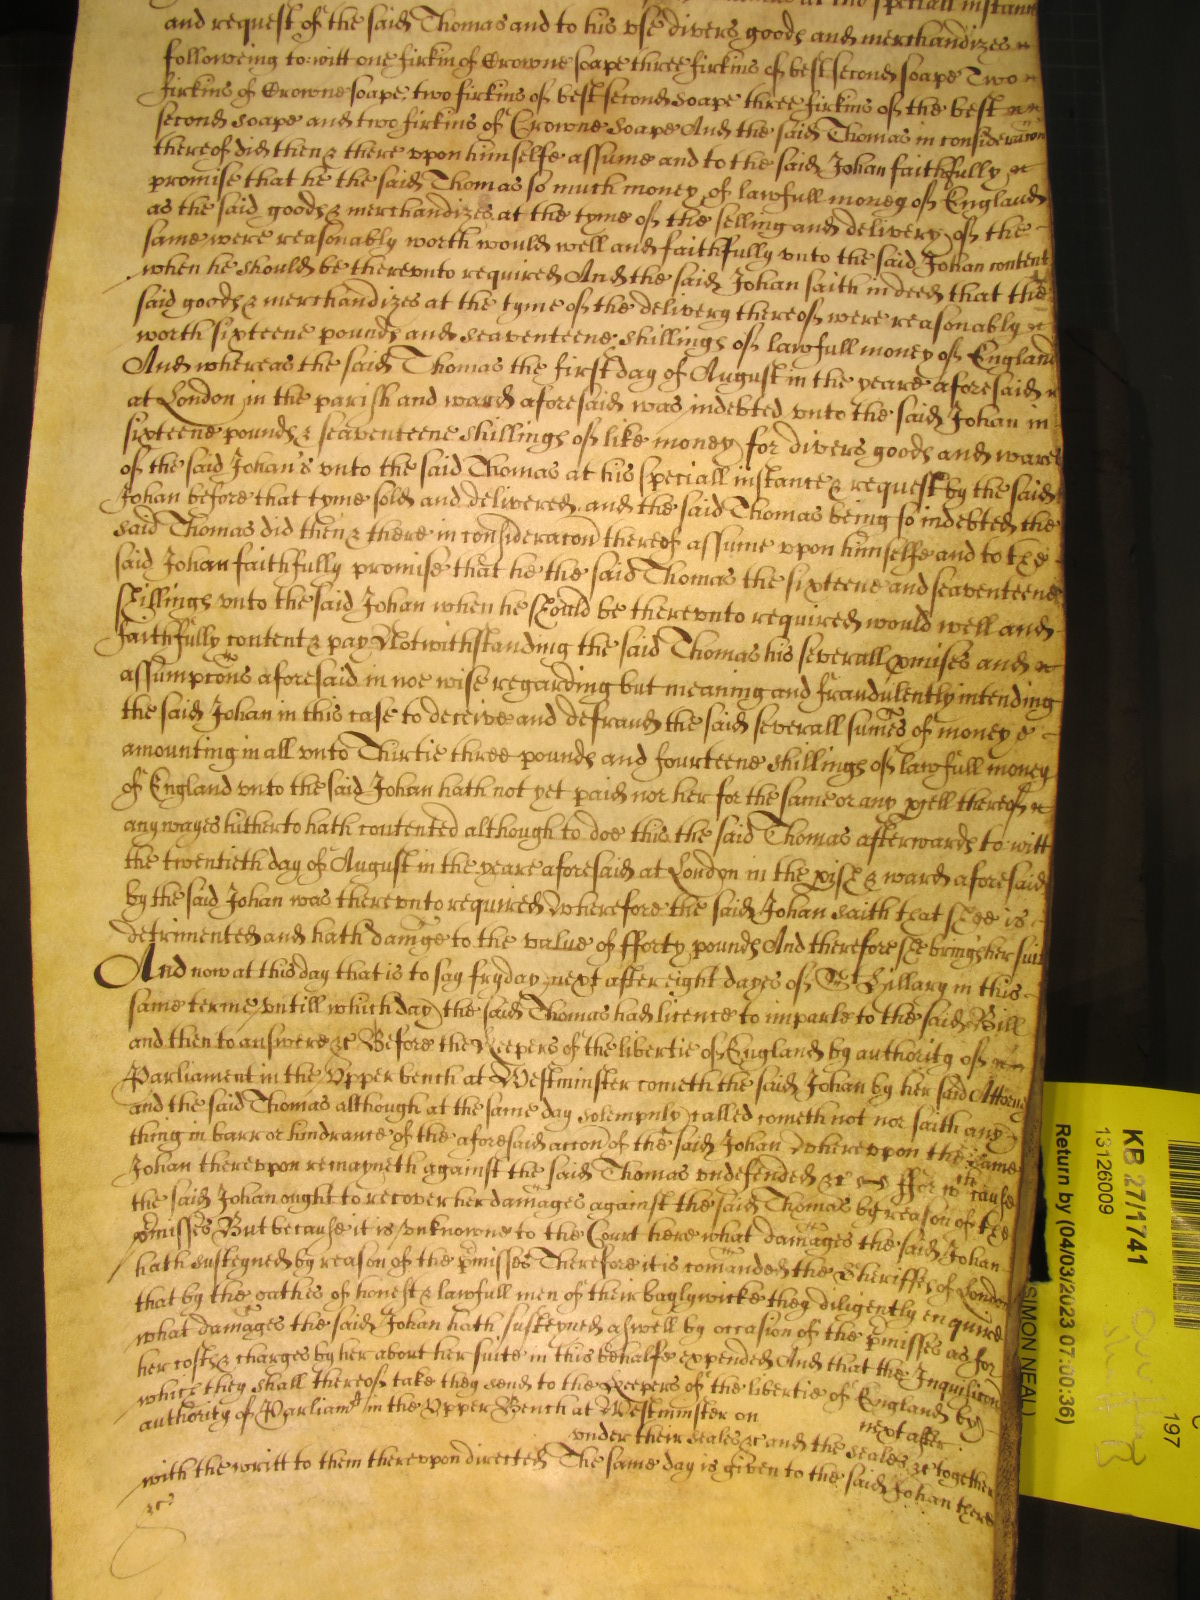 at the speciall instance
and request of the said Thomas and to his vse divers goods and merchandizes
followeing to witt one firkin of Crowne soape three firkins of best second soape Two
firkins of Crowne soape, two firkins of best second soape three firkins of the best
second soape and two firkins of Crowne soape And the said Thomas in consideracon
thereof did then & there vpon himselfe assume and to the said Johan faithfully
promise that he the said Thomas so much money of lawfull money of England
as the said goods & merchandizes at the tyme of the selling and delivery of the
same were reasonably worth would well and faithfully vnto the said Johan content
when he should be therevnto required And the said Johan saith indeed that the
said goods & merchandizes at the tyme of the delivery thereof were reasonably
worth sixteene pounds and seaventeene shillings of lawfull money of England
And whereas the said Thomas the first day of August in the yeare aforesaid
at London in the parish and ward aforesaid was indebted vnto the said Johan in
sixteene pounds & seaventeene shillings of like money for divers goods and wares
of the said Johan's vnto the said Thomas at his speciall instance & request by the said
Johan before that tyme sold and delivered and the said Thomas being so indebted the
said Thomas did then & there in consideracon thereof assume vpon himselfe and to the
said Johan faithfully promise that he the said Thomas the sixteene and seaventeene
shillings vnto the said Johan when he should be therevnto required would well and
faithfully content & pay Notwithstanding the said Thomas his severall pmises and
assumpcons aforesaid in noe wise regarding but meaning and fraudulently intending
the said Johan in this case to deceive and defraud the said severall sumes of money
amounting in all vnto Thirtie three pounds and fourteene shillings of lawfull money
of England vnto the said Johan hath not yet paid nor her for the same or any pcell thereof
any wayes hitherto hath contented although to doe this the said Thomas afterwards to witt
the twentieth day of August in the yeare aforesaid at London in the pish & ward aforesaid
by the said Johan was therevnto required Wherefore the said Johan saith that shee is
detrimented and hath damage to the value of fforty pounds And therefore she brings her suit
And now at this day that is to say fryday next after eight dayes of St Hillary in this
same terme vntill which day the said Thomas had licence to imparle to the said Bill
and then to answere &c Before the Keepers of the libertie of England by authority of
Parliament in the Vpper bench at Westminster cometh the said Johan by her said Attorney
and the said Thomas although at the same day solempnly called cometh not nor saith any
thing in barr or hindrance of the aforesaid accon of the said Johan Whereupon the same
Johan therevpon remayneth against the said Thomas vndefended &c ffor wch cause
the said Johan ought to recover her damages against the said Thomas by reason of the
pmisses But because it is vnknowne to the Court here what damages the said Johan
hath susteyned by reason of the pmisses Therefore it is comanded the Sheriffes of London
that by the oathes of honest & lawfull men of their baylywicke they diligently enquire
what damages the said Johan hath susteyned aswell by occasion of the pmisses as for
her costs & charges by her about her suite in this behalfe expended And that the Inquisicon
which they shall thereof take they send to the Keepers of the libertie of England by
authority of Parliamt in the Vpper Bench at Westminster on next after
vnder their seales &c and the seales &c together
with the writt to them therevpon directed The same day is given to the said Johan there
&c
KB 27/1741
13126009
Return by (04/03/2023 07:00:36)
(SIMON NEAL)
197